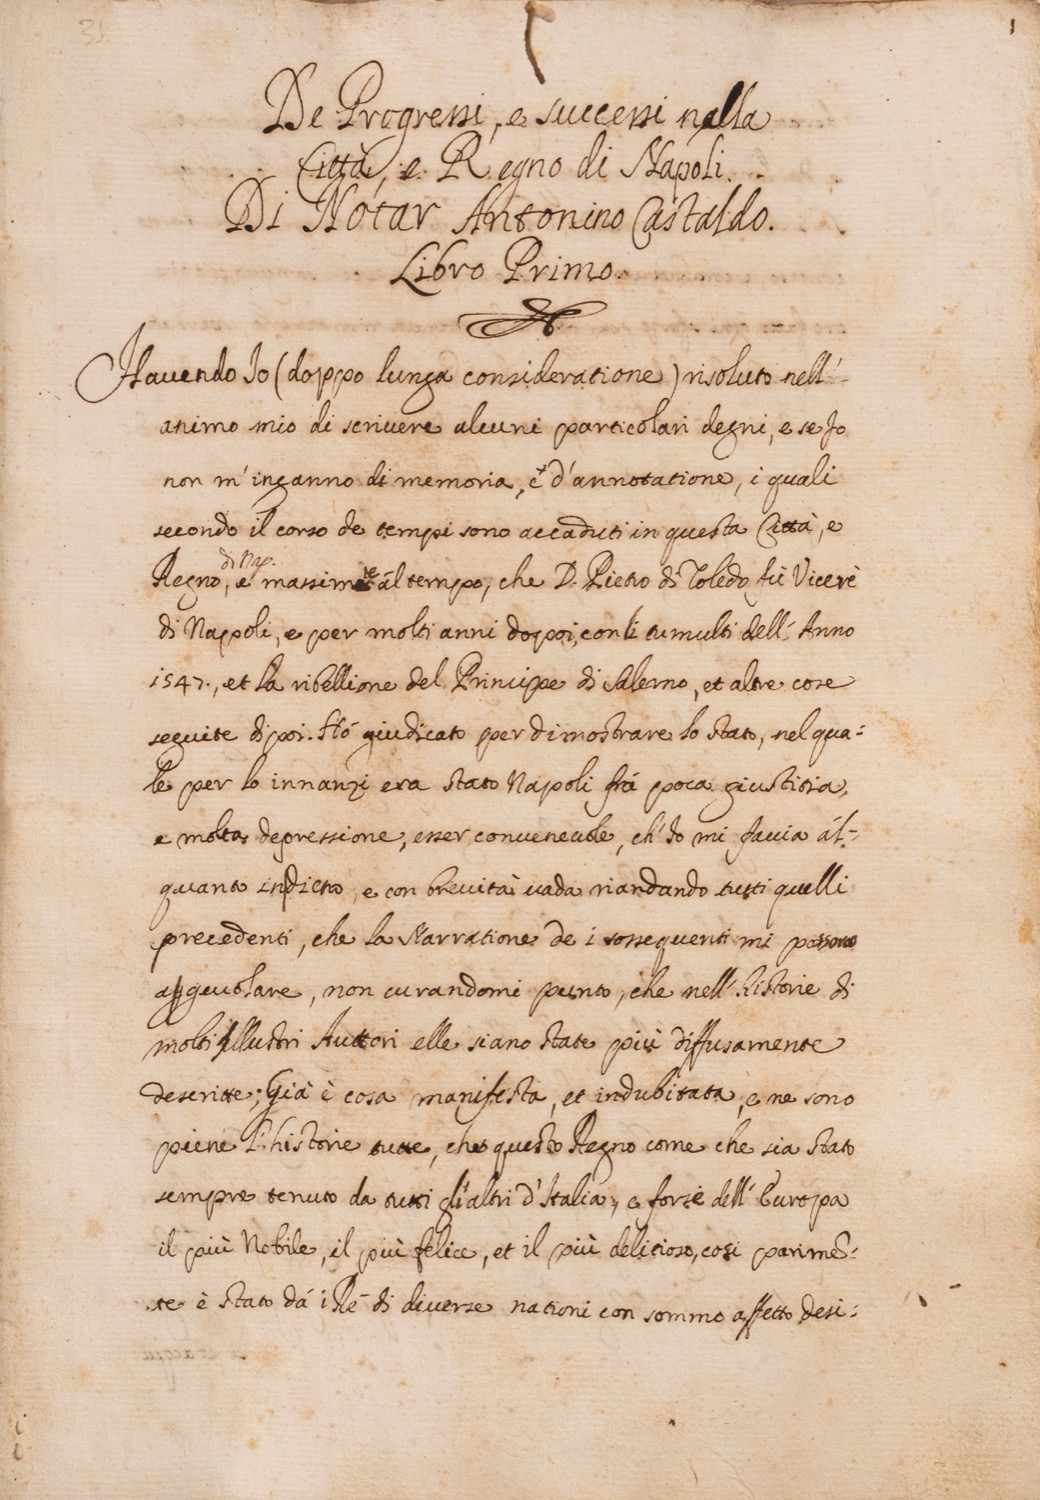 31
1
De Progressi, e successi nella
Città, e Regno di Napoli.
Di Notar Antonino Castaldo.
Libro Primo.
Havendo Io (doppo lunga consideratione) risoluto nell'
animo mio di scrivere alcuni particolari degni, e se Io
non m'inganno di memoria, e d'annotatione, i quali
secondo il corso de tempi sono accaduti in questa Città, e
Regno, di Nap. e massime al tempo, che D. Pietro di Toledo fù Vicerè
di Napoli, e per molti anni dopoi, con li tumulti dell'Anno
1547., et la ribellione del Principe di Salerno, et altre cose
seguite dipoi. Hó giudicato per dimostrare lo stato, nel qua=
le per lo innanzi era stato Napoli frá poca giustitia,
e molta depressione, esser convenevole, ch'Io mi faccia ál=
quanto indietro, e con brevità vada riandando tutti quelli
precedenti, che la Narratione de i sossequenti mi possono
aggevolare, non curandomi punto, che nell'historie di
molti Illustri Auttori elle siano state più diffusamente
descritte; Già è cosa manifesta, et indubitata, e ne sono
piene l'historie tutte, che questo Regno come che sia stato
sempre tenuto da tutti gl'altri d'Italia, e forse dell'Europa
il più Nobile, il più felice, et il più delitioso, così parimē=
te è stato dá i Ré di diverse nationi con sommo affetto desi=